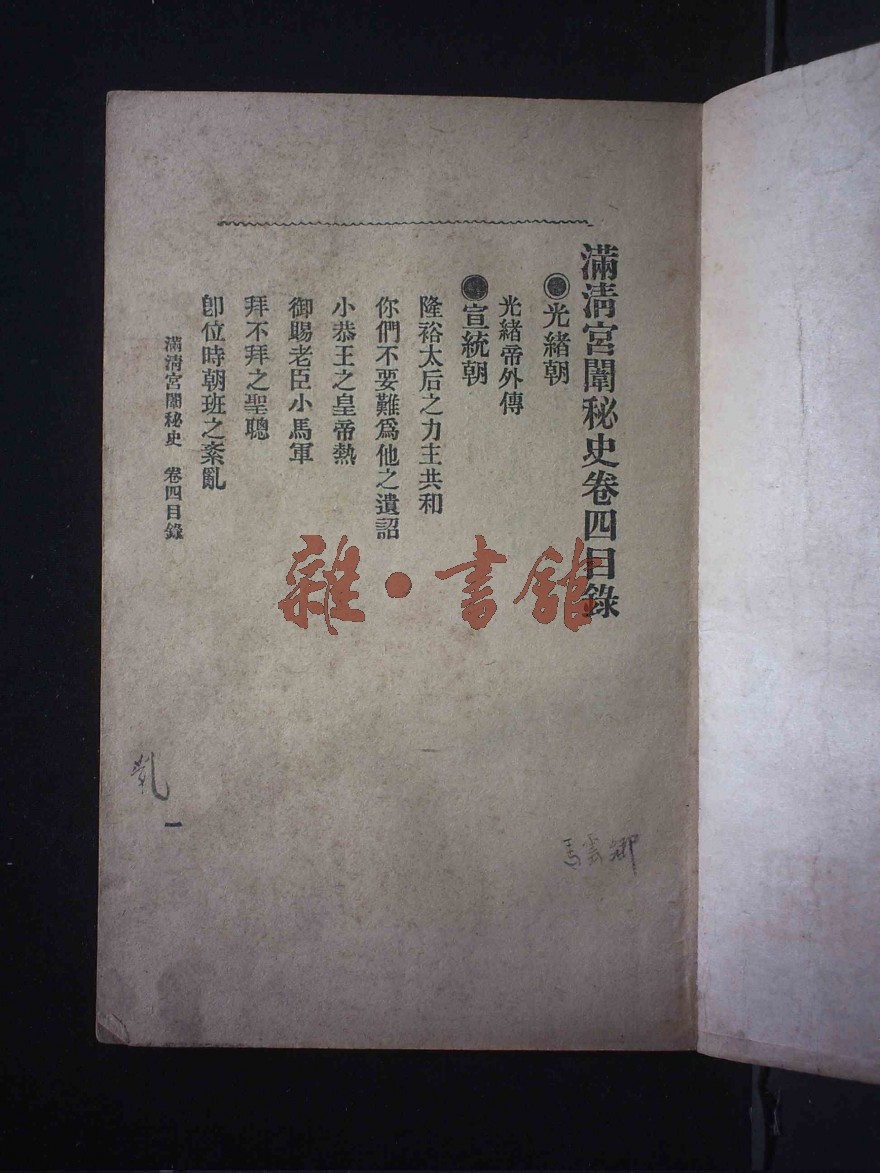 滿清宮闈秘史卷四目錄
◉光緒朝
光緒帝外傳
◉宣統朝
隆裕太后之力主共和
你們不要難爲他之遺詔
小恭王之皇帝熱
御賜老臣小馬軍
拜不拜之聖聰
卽位時朝班之紊亂
滿清宮闈秘史 卷四目錄
一
雜·書館